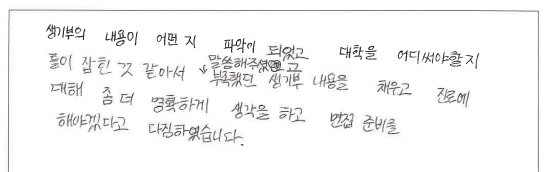 생기부의 내용이 어떤 지 파악이 되었고 대학을 어디써야할지
틀이 잡힌 것 같아서 말씀해주셨던
부족했던 생기부 내용을 채우고 진로에
대해 좀 더 명확하게 생각을 하고 면접 준비를
해야겠다고 다짐하였습니다.